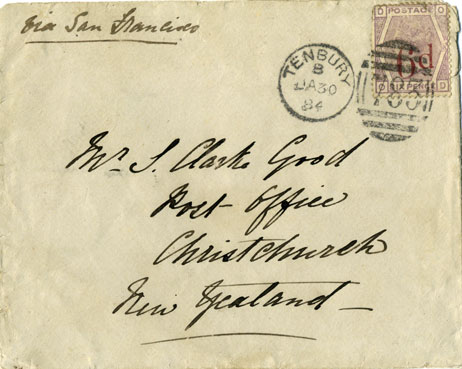 via San Francisco
D POSTAGE O
6d
O SIX PENCE D
TENBURY
B
JA 30
84
Mr. S. Clarke Good
Post Office
Christchurch
New Zealand